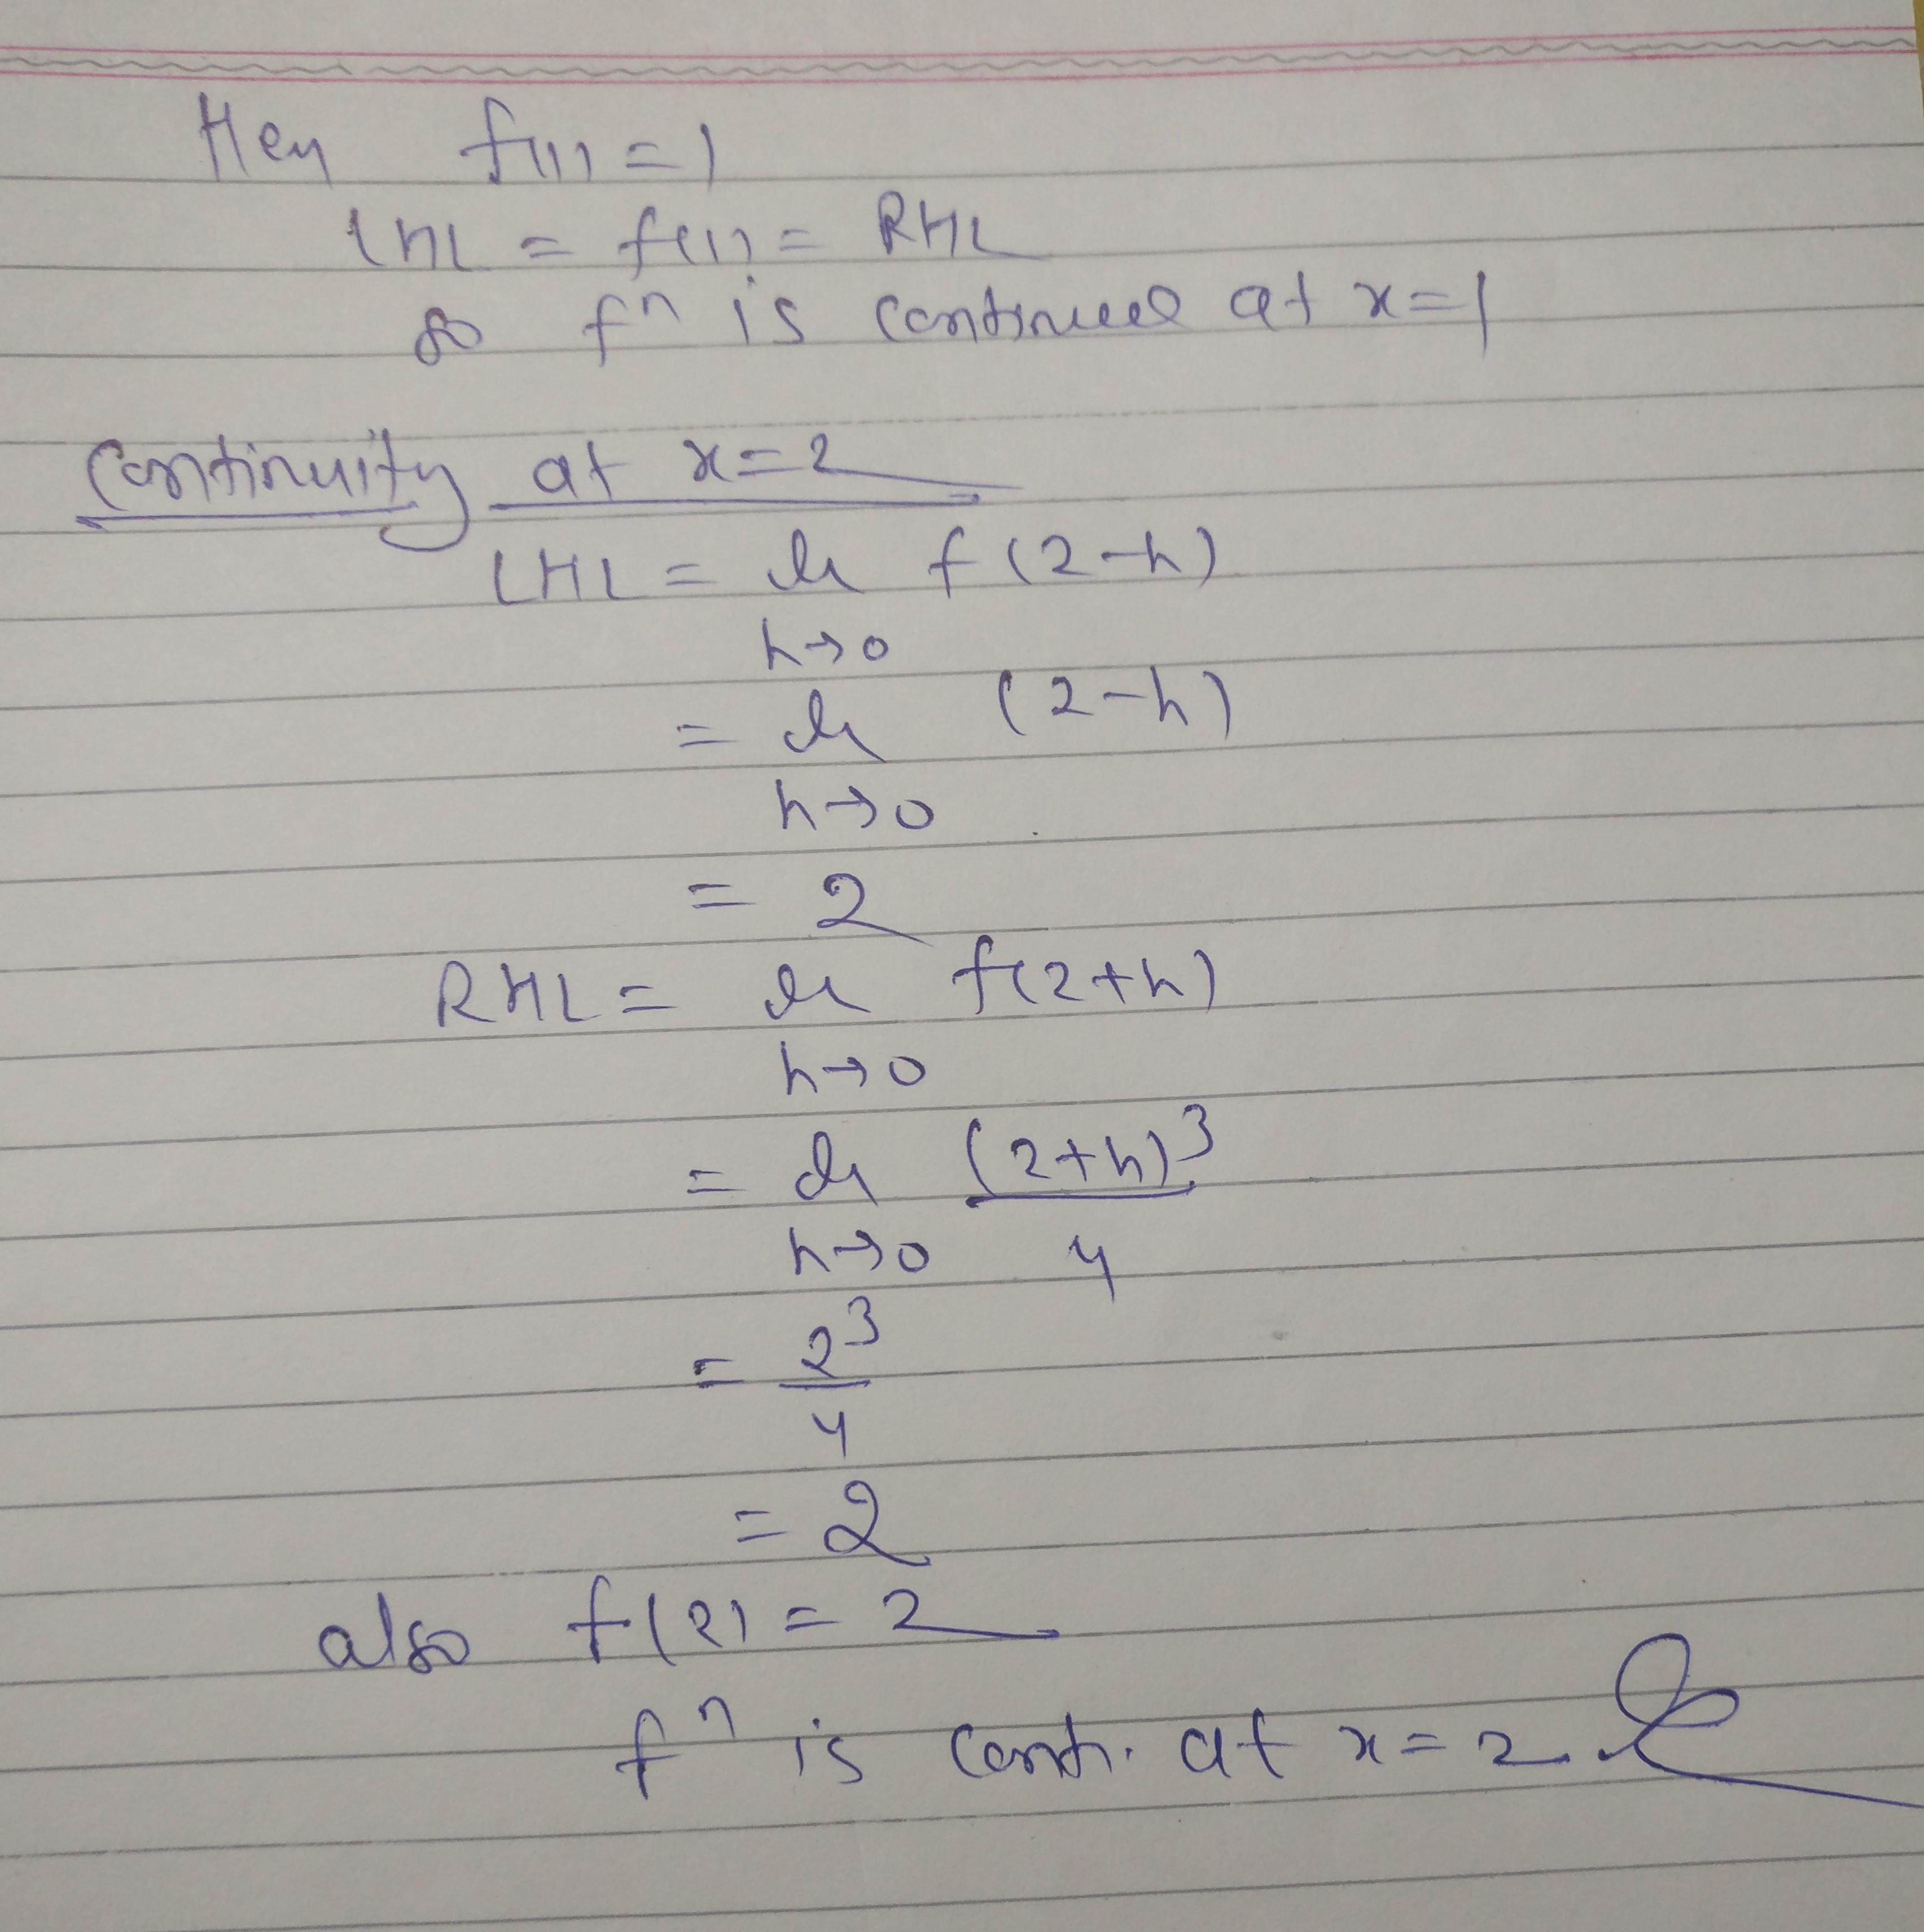 Hen f(1) = 1
LHL = f(1) = RHL
so fⁿ is continuous at x=1
Continuity at x=2
LHL = lt f(2-h)
h→0
= lt (2-h)
h→0
= 2
RHL = lt f(2+h)
h→0
= lt (2+h)³
h→0 4
= 2³
4
= 2
also f(2) = 2
fⁿ is conti. at x=2